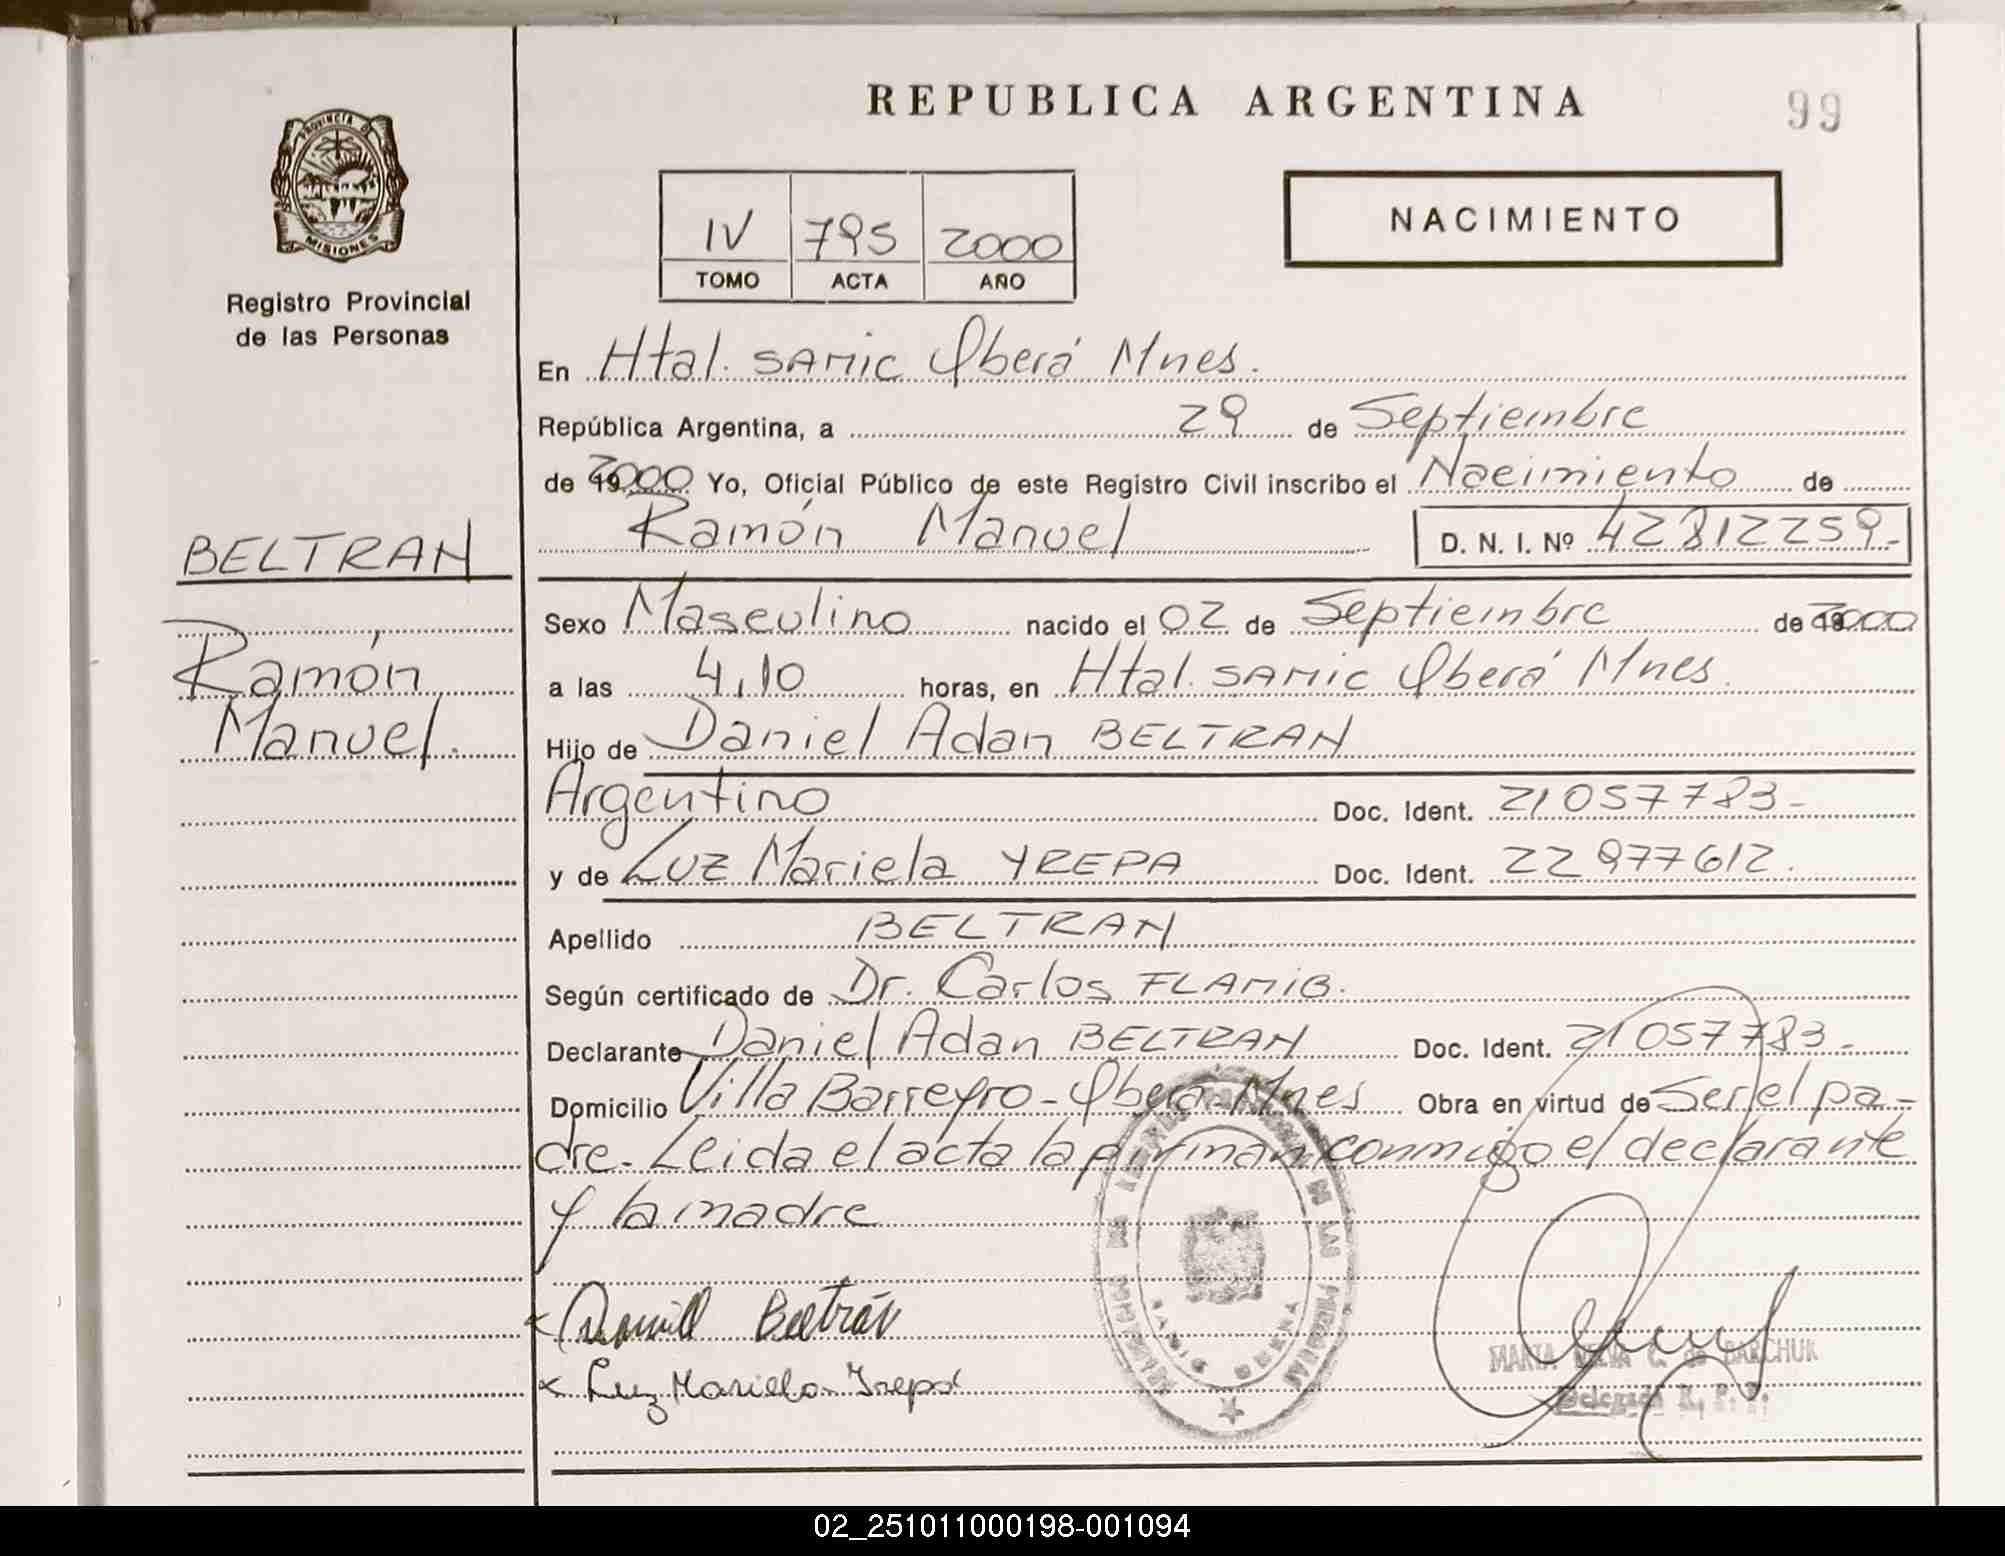 REPUBLICA ARGENTINA
99
PROVINCIA DE
MISIONES
Registro Provincial
de las Personas
IV 795 2000
TOMO ACTA AÑO
NACIMIENTO
En Htal. SAMIC Oberá Mnes.
República Argentina, a 29 de Septiembre
de 2000 Yo, Oficial Público de este Registro Civil inscribo el Nacimiento de
Ramón Manuel D. N. I. Nº 42812259-
BELTRAN
Ramón
Manuel.
Sexo Masculino nacido el 02 de Septiembre de 2000
a las 4,10 horas, en Htal. SAMIC Oberá Mnes.
Hijo de Daniel Adan BELTRAN
Argentino Doc. Ident. 21057783-
y de Luz Mariela YREPA Doc. Ident. 22977612.
Apellido BELTRAN
Según certificado de Dr. Carlos
Declarante Daniel Adan BELTRAN Doc. Ident. 21057783-
Domicilio Villa Barreyro-Oberá-Mnes Obra en virtud de Ser el pa-
dre- Leida el acta la firman conmigo el declarante
y la madre
Beltrán
Luz Mariela Irepa
DE LAS PERSONAS
C. de BARCHUK
Delegada R. P. P.
02_251011000198-001094